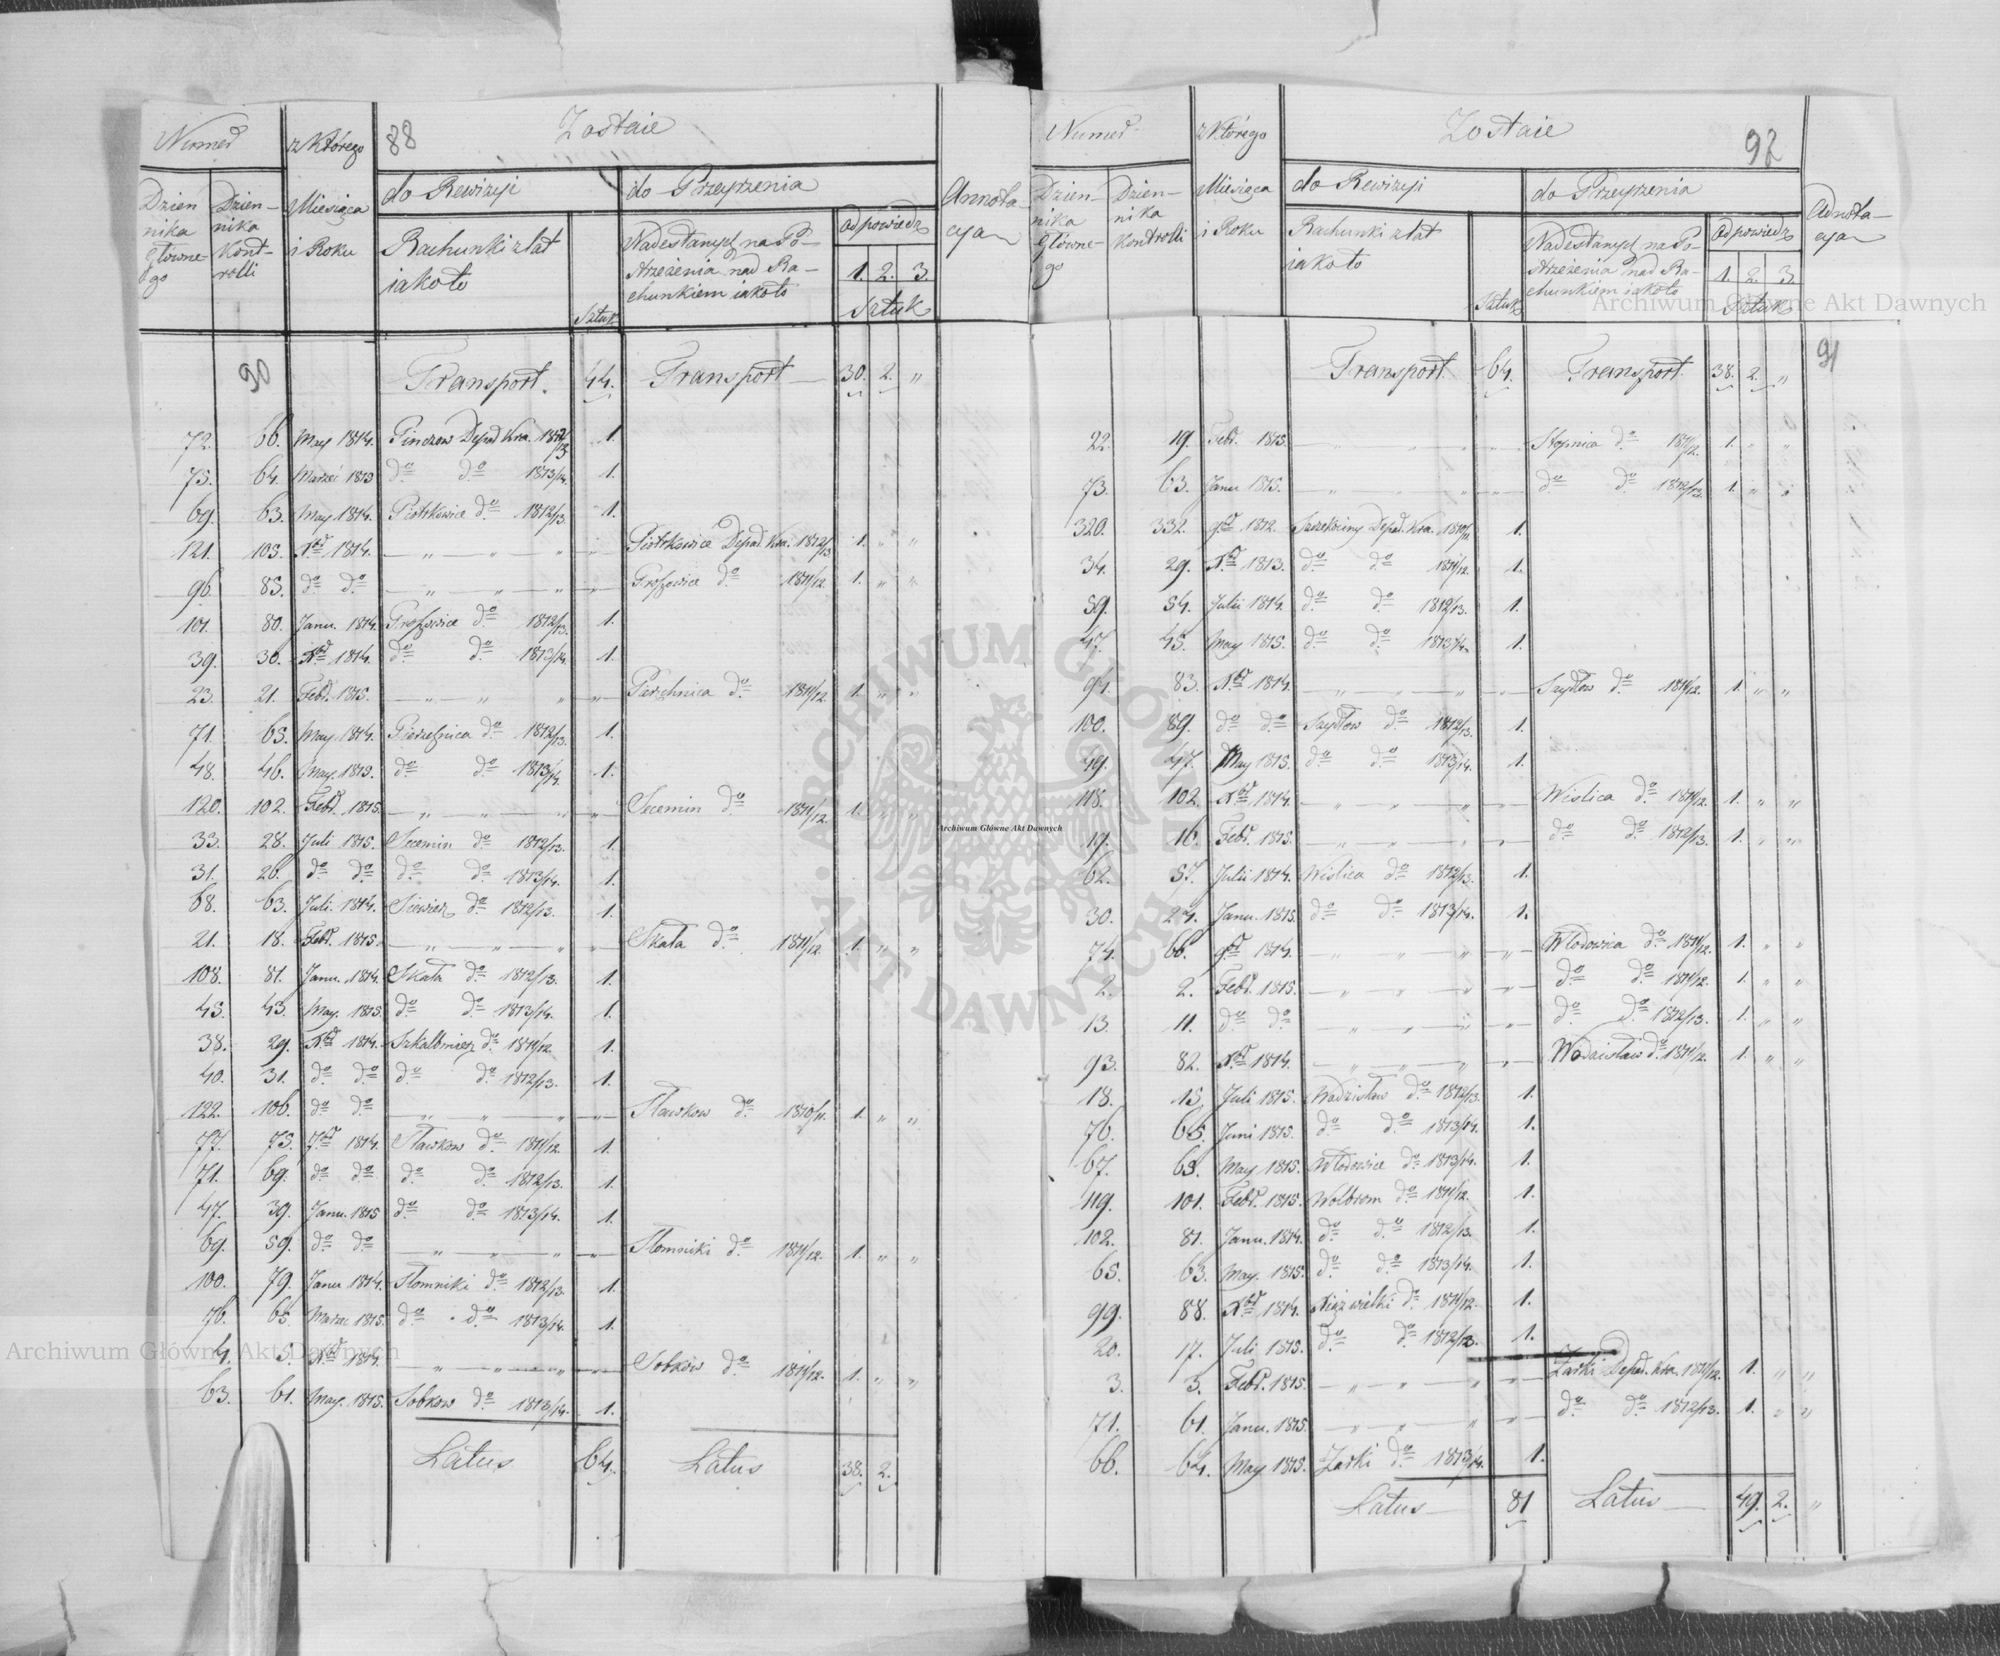 Numer
z Którego
88
Zostaie
Dzien
nika
główne-
go
Dzien-
nika
Kont-
rolli
Miesiąca
i Roku
do Rewizyi
do Przeyrzenia
Annota-
cya
Rachunki z lat
iako to
Sztuk
Nadesłanych na Po-
strzeżenia nad Ra-
chunkiem iako to
Odpowiedz
1. 2. 3.
Sztuk
90
Transport. 44. Transport 30. 2. "
72. 66. May 1814. Pinczow Depad Kra. 1812/13 1.
75. 64. Marzec 1815 do do 1813/14. 1.
69. 63. May 1814. Piotrkowice do 1812/13. 1.
121. 105. Xbr 1814. — " — " — " — Piotrkowice Depad. Kra. 1812/13 1. " "
96. 85. do do — " — " — " — Proszowice do 1811/12. 1. " "
101. 80. Janu. 1814. Proszowice do 1812/13. 1.
39. 30. Xbr 1814. do do 1813/14. 1.
23. 21. Febr. 1815. — " — " — " — Pierzchnica do 1811/12. 1. " "
71. 65. May 1814. Pierzchnica do 1812/13. 1.
48. 46. May. 1815. do do 1813/14 1.
120. 102. Febr. 1815. — " — " — " — Secemin do 1811/12. 1. " "
33. 28. Juli 1815. Secemin do 1812/13. 1.
31. 26. do do do do 1813/14. 1.
68. 63. Juli. 1814. Siewierz do 1812/13. 1.
21. 18. Febr. 1815. — " — " — " — Skała do 1811/12. 1. " "
108. 87. Janu. 1814. Skała do 1812/13. 1.
45. 43. May. 1815. do do 1813/14. 1.
38. 29. Xbr 1814. Szkalbmierz do 1811/12 1.
40. 31. do do do do 1812/13. 1.
122. 106. do do — " — " — " — Sławkow do 1810/11. 1. " "
77. 75. 7br 1814. Sławkow do 1811/12. 1.
71. 69. do do do do 1812/13. 1.
47. 39. Janu. 1815 do do 1813/14. 1.
69. 59. do do — " — " — " — Słomniki do 1811/12. 1. " "
100. 79. Janu 1814. Słomniki do 1812/13. 1.
76. 65. Marzec 1815. do do 1813/14. 1.
4. 5. Xbr 1814. — " — " — " — Sobków do 1811/12. 1. " "
63. 61. May. 1815. Sobkow do 1813/14. 1.
Latus 64. Latus 38. 2.
Numer
z Którego
Zostaie
92
Dzien-
nika
główne-
go
Dzien-
nika
Kontrolli
Miesiąca
i Roku
do Rewizyi
do Przeyrzenia
Adnota-
cya
Rachunki z lat
iako to
Sztuk
Nadesłanych na Po-
strzeżenia nad Ra-
chunkiem iako to
Odpowiedz
1. 2. 3.
Sztuk
91
Transport. 64. Transport. 38. 2. "
22. 19. Febr. 1815. — " — " — " — Stopnica do 1811/12. 1. " "
73. 63. Janu 1815. — " — " — " — do do 1812/13. 1. " "
320. 332. 9br 1812. Szczekociny Depad. Kra. 1810/11. 1.
34. 29. Xbr 1813. do do 1811/12. 1.
59. 54. Julii 1814. do do 1812/13. 1.
47. 45. May 1815. do do 1813/14. 1.
94. 83. Xbr 1814. — " — " — " — Szydłow do 1811/12. 1. " "
100. 89. do do Szydłow do 1812/13. 1.
49. 47. May 1815. do do 1813/14. 1.
118. 102. Xbr 1814. — " — " — " — Wislica do 1811/12. 1. " "
19. 16. Febr. 1815. — " — " — " — do do 1812/13. 1. " "
62. 57. Julii 1814. Wislica do 1812/13. 1.
30. 24. Janu. 1815. do do 1813/14. 1.
74. 66. 9br 1814. — " — " — " — Włodowica do 1811/12. 1. " "
2. 2. Febr. 1815. — " — " — " — do do 1811/12. 1. " "
13. 11. do do — " — " — " — do do 1812/13. 1. " "
93. 82. Xbr 1814. — " — " — " — Wodzisław do 1811/12. 1. " "
18. 15. Juli 1815. Wodzisław do 1812/13. 1.
76. 65. Juni 1815. do do 1813/14. 1.
67. 63. May 1815. Włodowice do 1813/14. 1.
119. 101. Febr. 1815. Wolbrom do 1811/12. 1.
102. 81. Janu. 1814. do do 1812/13. 1.
65. 63. May. 1815. do do 1813/14. 1.
99. 88. Xbr 1814. Xiąż wielki do 1811/12. 1.
20. 17. Juli 1815. do do 1812/13. 1.
3. 3. Febr. 1815. — " — " — " — Żarki Depad. Kra. 1811/12. 1. " "
71. 61. Janu. 1815. — " — " — " — do do 1812/13. 1. " "
66. 64. May 1815. Żarki do 1813/14. 1.
Latus 81 Latus 49. 2. "
Archiwum Główne Akt Dawnych
Archiwum Główne Akt Dawnych
Archiwum Główne Akt Dawnych
ARCHIWUM GŁÓWNE AKT DAWNYCH